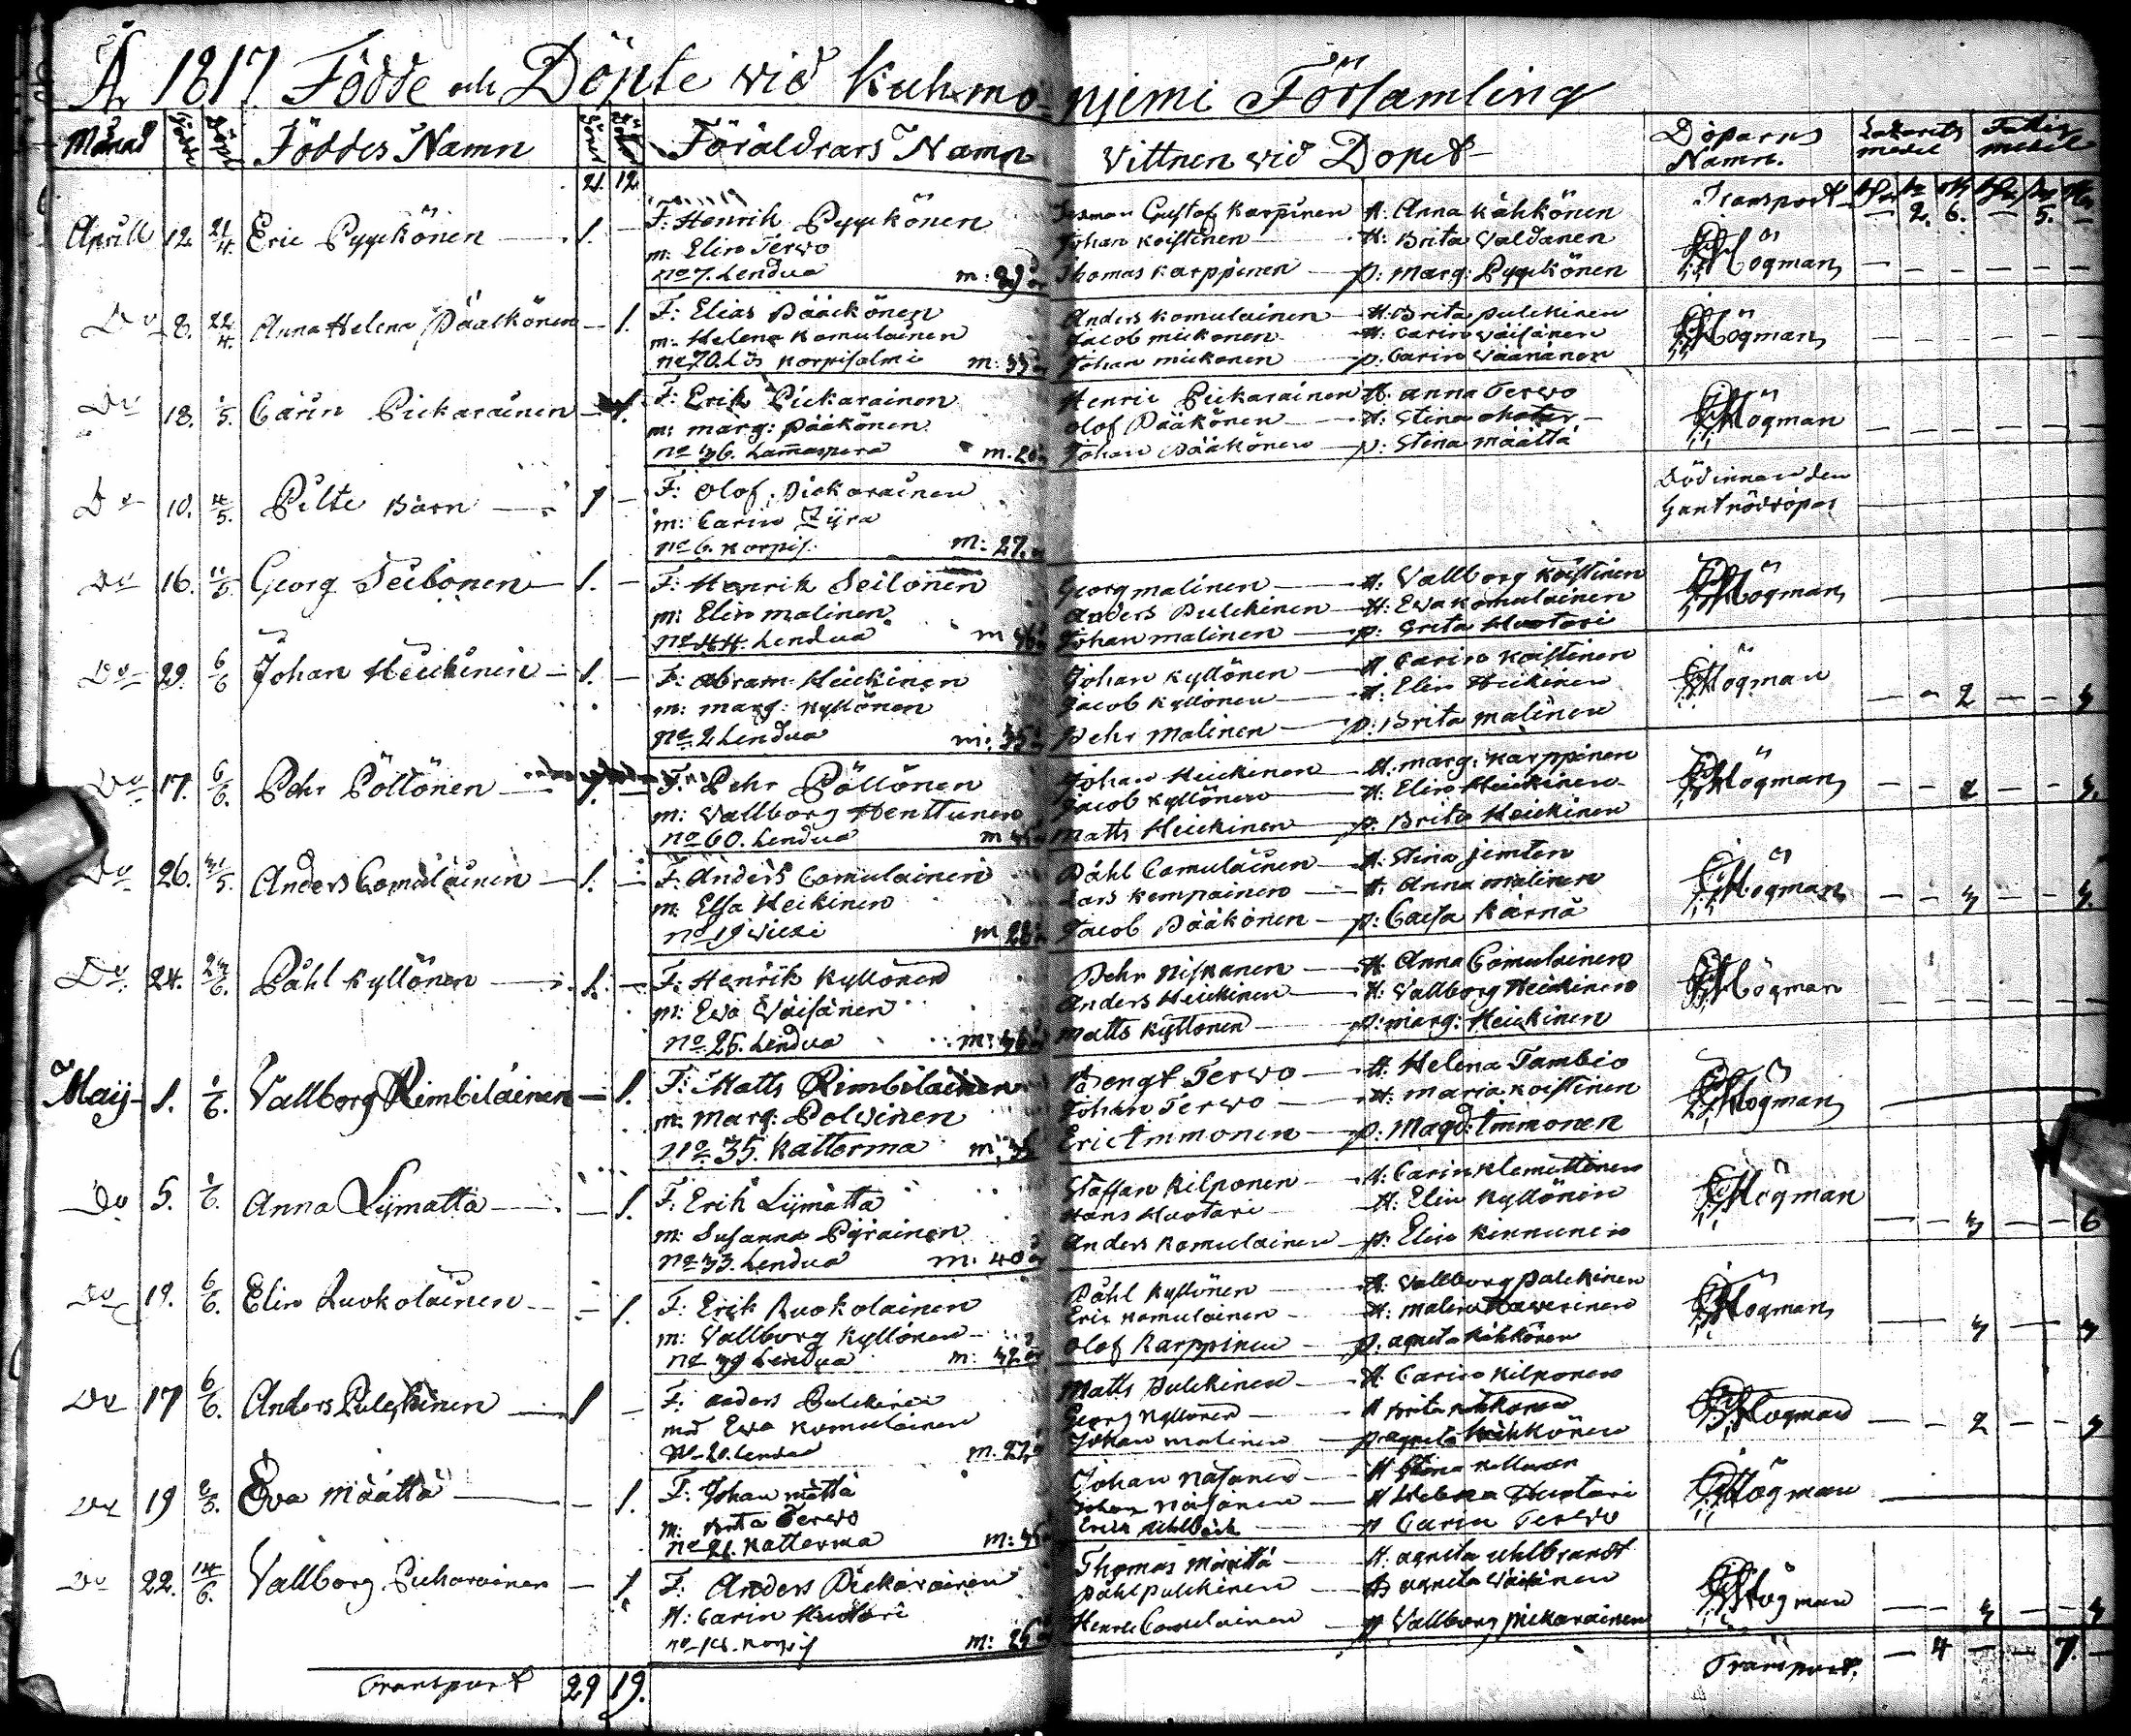 År 1817 Födde och Döpte vid Kuhmoniemi Församling
Månad Född Döpt Föddes Namn Söner Döttrar Föräldrars Namn Vittnen vid Dopet Döparns Namn. Lazarets medel Fattig medel
21. 12. Transport — 2. 6. — 5. —
Aprill 12. 21/4. Eric Pyykönen — 1. —
F: Henrik Pyykönen
m: Elin Tervo
No 7. Lendua m: 29
Gustaf Karpinen H: Anna Kähkönen
Johan Koistinen — H: Brita Valdanen
Thomas Karppinen — p: Marg: Pyykönen
Högman
Do 8. 22/4. Anna Helena Pääkönen — 1.
F: Elias Pääckönen
m: Helena Komulainen
No 70. Korpisalmi m: 33
Anders Komulainen — H: Brita Pulckinen
Jacob Mickonen — H: Carin Väisänen
Johan Mickonen — p: Carin Väänänen
Högman
Do 18. 1/5. Carin Pickarainen — 1.
F: Erik Pickarainen
m: Marg: Pääkönen
No 36. Lammasperä m. 26
Henric Pickarainen H: Anna Terwo
Olof Pääkönen — H: Stina
Johan Pääkönen — p: Stina Määttä
Högman
Do 10. 4/5. Pilte Barn — 1 —
F: Olof Pickarainen
m: Carin
No 6. Korpis. m: 27.
Död innan den
hant nöddöpas
Do 16. 11/5. Georg Seilonen — 1. —
F: Henrik Seilonen
m: Elin Malinen
No 44. Lendua m 46
Georg Malinen — H: Vallborg Koistinen
Anders Pulckinen — H: Eva Komulainen
Johan Malinen — p: Brita Huotari
Högman
Do 29. 6/6 Johan Heickinen — 1. —
F: Abram Heickinen
m: Marg: Kyllönen
No 2 Lendua m: 35
Johan Kyllönen — H Carin Koistinen
Jacob Kyllönen — H: Elin Heickinen
Pehr Malinen — p: Brita Malinen
Högman — — 2 — — 3
Do 17. 6/6. Pehr Pöllönen — 1. —
F: Pehr Pöllönen
m: Vallborg Henttunen
No 60. Lendua
Johan Heickinen — H: Marg: Karppinen
Jacob Kyllönen — H: Elin Heickinen
Matts Heickinen — p: Brita Heickinen
Högman — — 2 — — 3.
Do 26. 31/5. Anders Comulainen — 1. —
F: Anders Comulainen
m: Elsa Heickinen
No 19 Wiexi m 28
Påhl Comulainen — H: Stina Jemten
Lars Kempainen — H: Anna Malinen
Jacob Pääkönen — p: Caisa Kärnä
Högman — — 3 — — 3.
Do 24. Påhl Kyllönen — 1. —
F: Henrik Kyllönen
m: Eva Väisänen
No 25. Lendua m: 36
Pehr Niskanen — H: Anna Comulainen
Anders Heickinen — H: Vallborg Heickinen
Matts Kyllönen — p: Marg: Heickinen
Högman
Maij 1. 1/6. Vallborg Rimbiläinen — 1.
F: Matts Rimbiläinen
m: Marg: Polvinen
No 35. Katterma m: 35
Bengt Terwo — H Helena Tambio
Johan Terwo — H: Maria Koistinen
Eric Immonen — p: Magd: Immonen
Högman
Do 5. 1/6. Anna Lijmatta — 1.
F: Erik Lijmatta
m: Susanna Pyräinen
No 33. Lendua m: 40
Staffan Kilponen — H: Carin Klemettinen
Hans Huotari — H: Elin Kyllönen
Anders Komulainen — p: Elin Kinnunen
Högman — — 3 — — 6
Do 19. 6/6. Elin Ruokolainen — 1.
F: Erik Ruokolainen
m: Vallborg Kyllönen
No 39 Lendua m: 32
Påhl Kyllönen — H: Vallborg Pulckinen
Eric Komulainen — H: Malin Kaverinen
Olof Karppinen — p: Agneta Kähkönen
Högman — 3 — 3
Do 17 6/6. Anders Pulckinen — 1 —
F: Anders Pulckinen
md Eva Komulainen
No 20. Lendua m. 27
Matts Pulckinen — H: Carin Kilponen
Georg Kyllönen — H Brita
Johan Malinen — p Agneta Kähkönen
Högman — — 2 — — 3
Do 19 Eva Määttä — 1.
F: Johan Mättä
m: Brita Terwo
No 21. Katterma m: 45
Johan Näsänen — H Stina
Johan Näsänen — H Helena Huotari
Erick — p Carin Terwo
Högman
Do 22. 14/6. Vallborg Pickarainen — 1.
F: Anders Pickarainen
H: Carin Huotari
Korpis m: 26
Thomas Määttä — H: Agneta Uhlbrandt
Påhl Pulckinen — H Agneta Väisänen
Henric Comulainen p Vallborg Pickarainen
Högman — — 3 — — 3
Transport 29 19. Transport. — 4 — — 7. —